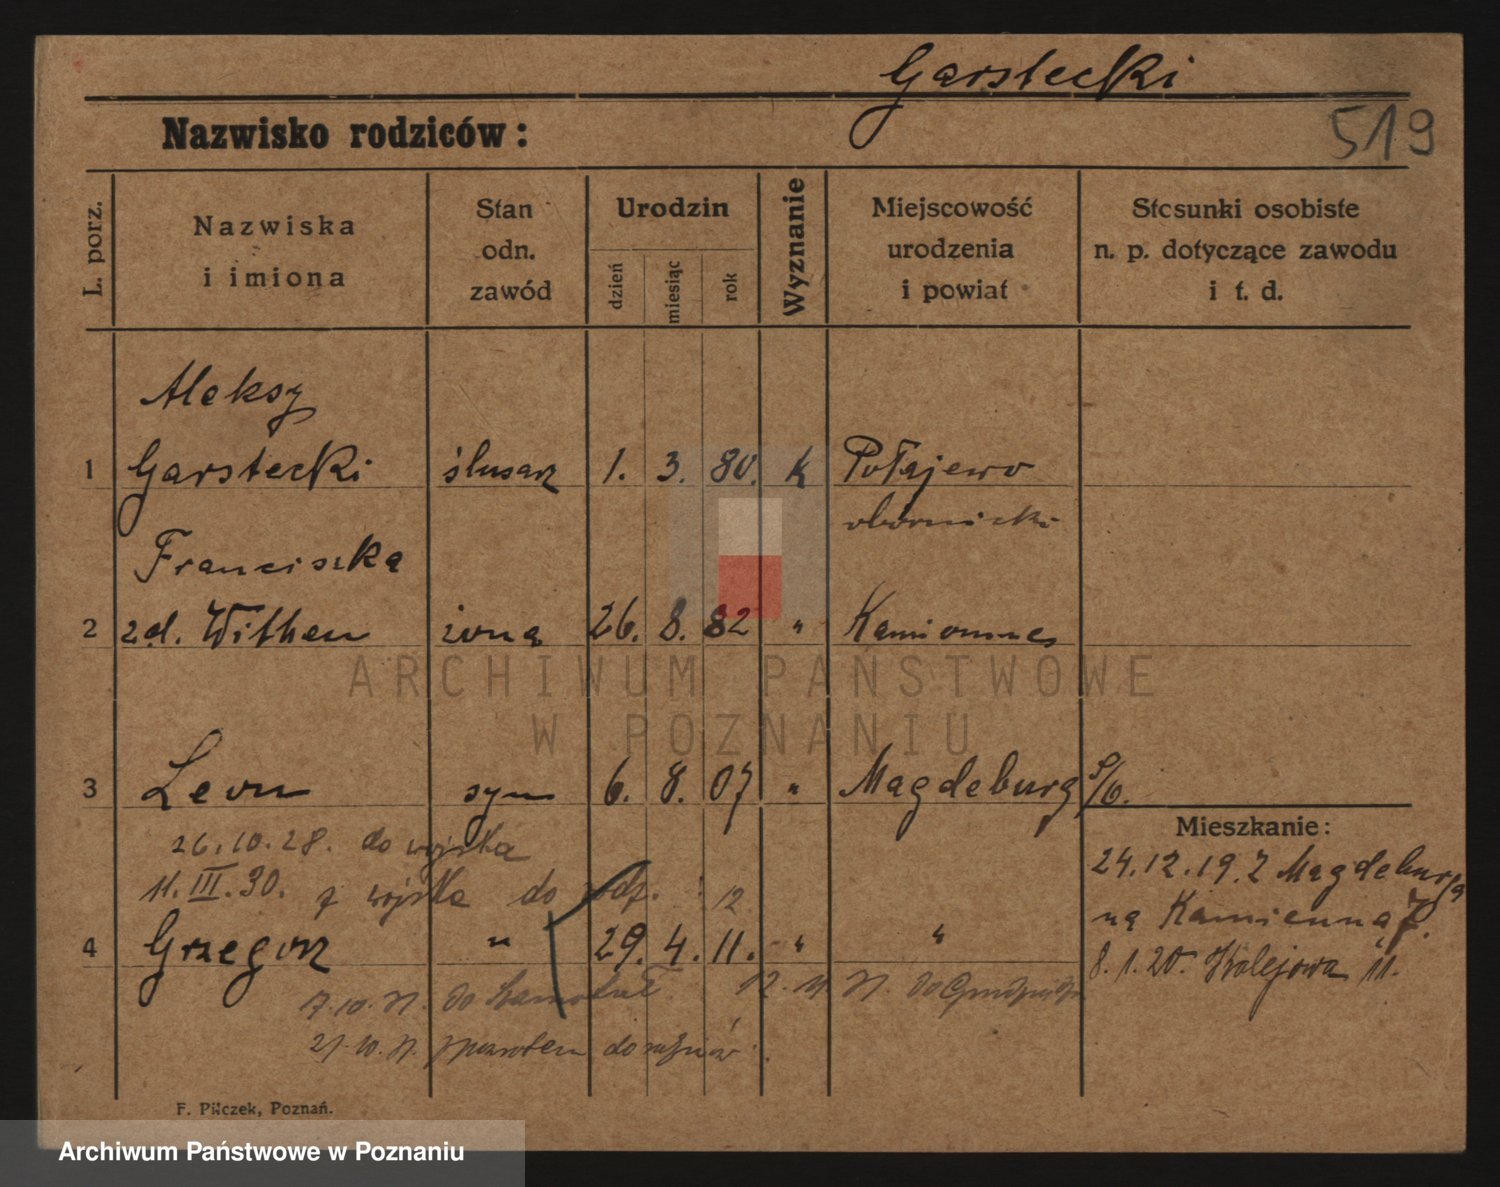 Garstecki
519
Nazwisko rodziców:
L. porz.
Nazwiska
i imiona
Stan
odn.
zawód
Urodzin
dzień
miesiąc
rok
Wyznanie
Miejscowość
urodzenia
i powiat
Stosunki osobiste
n. p. dotyczące zawodu
i t. d.
Aleksy
1 Garstecki ślusarz 1. 3. 80. k Połajewo
obornicki
Franciszka
2 zd. Withen żona 26. 8. 82 "
ARCHIWUM PAŃSTWOWE
W POZNANIU
3 Leon syn 6. 8. 07 " Magdeburg
Mieszkanie:
26.10.28. do wojska
24.12.19. z Magdeburga
11.III.30. z wojska do rodz. 12
na Kamienną 7.
4 Grzegorz " 29. 4. 11. " "
8.1.20. Kolejowa 11.
17.10. do
21.10. do
F. Pilczek, Poznań.
Archiwum Państwowe w Poznaniu